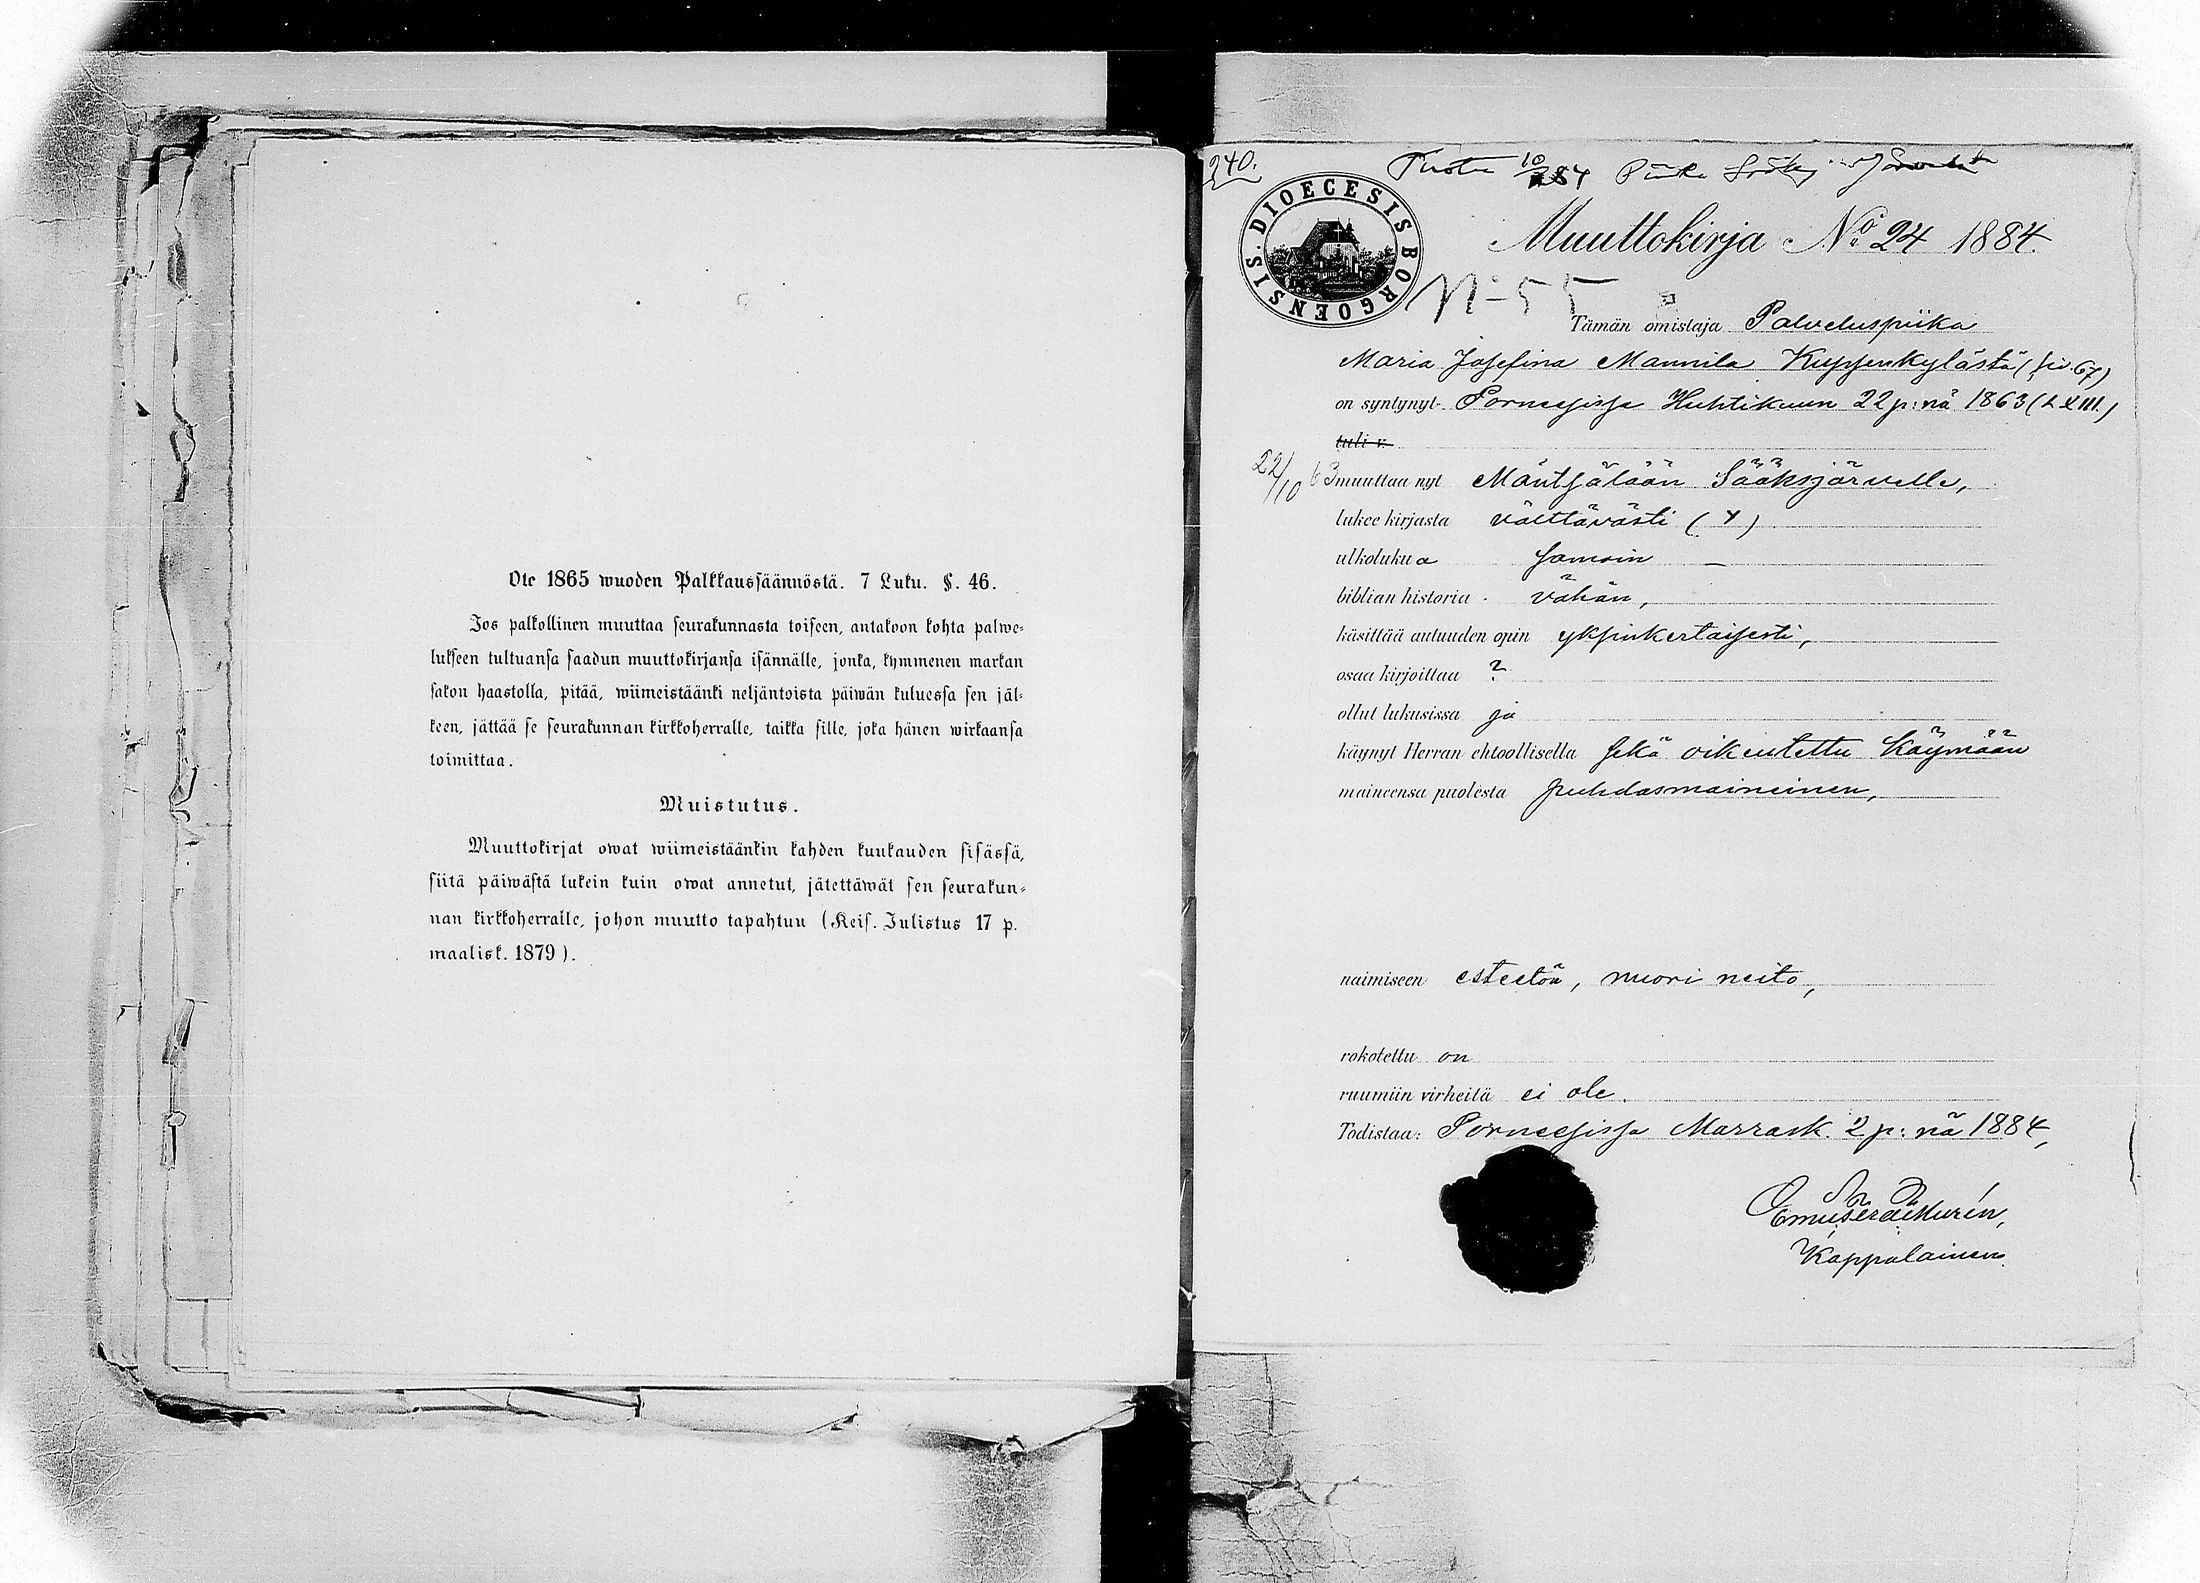 Ote 1865 wuoden Palkkaussäännöstä. 7 Luku. §. 46.
Jos palkollinen muuttaa seurakunnasta toiseen, antakoon kohta palwe-
lukseen tultuansa saadun muuttokirjansa isännälle, jonka, kymmenen markan
sakon haastolla, pitää, wiimeistäänki neljäntoista päiwän kuluessa sen jäl-
keen, jättää se seurakunnan kirkkoherralle, taikka sille, joka hänen wirkaansa
toimittaa.
Muistutus.
Muuttokirjat owat wiimeistäänkin kahden kuukauden sisässä,
siitä päiwästä lukein kuin owat annetut, jätettäwät sen seurakun-
nan kirkkoherralle, johon muutto tapahtuu (Keis. Julistus 17 p.
maalisk. 1879).
240.
DIOECESIS BORGOENSIS.
Muuttokirja No 24 1884.
N:55
Tämän omistaja Palveluspiika
Maria Josefina Mannila Kuppenkylästä ( 67)
on syntynyt Pornesissa Huhtikuun 22 p:nä 1863 (LXIII.)
tuli v.
22/10 63
muuttaa nyt Mäntsälään Sääksjärvelle,
lukee kirjasta välttävästi
ulkolukua samoin —
biblian historia vähän,
käsittää autuuden opin yksinkertaisesti,
osaa kirjoittaa ?
ollut lukusissa ja
käynyt Herran ehtoollisella sekä oikeutettu käymään
maineensa puolesta puhdasmaineinen,
naimiseen esteetön, nuori neito,
rokotettu on
ruumiin virheitä ei ole.
Todistaa: Pornesissa Marrask. 2 p:nä 1884,
Kappalainen.